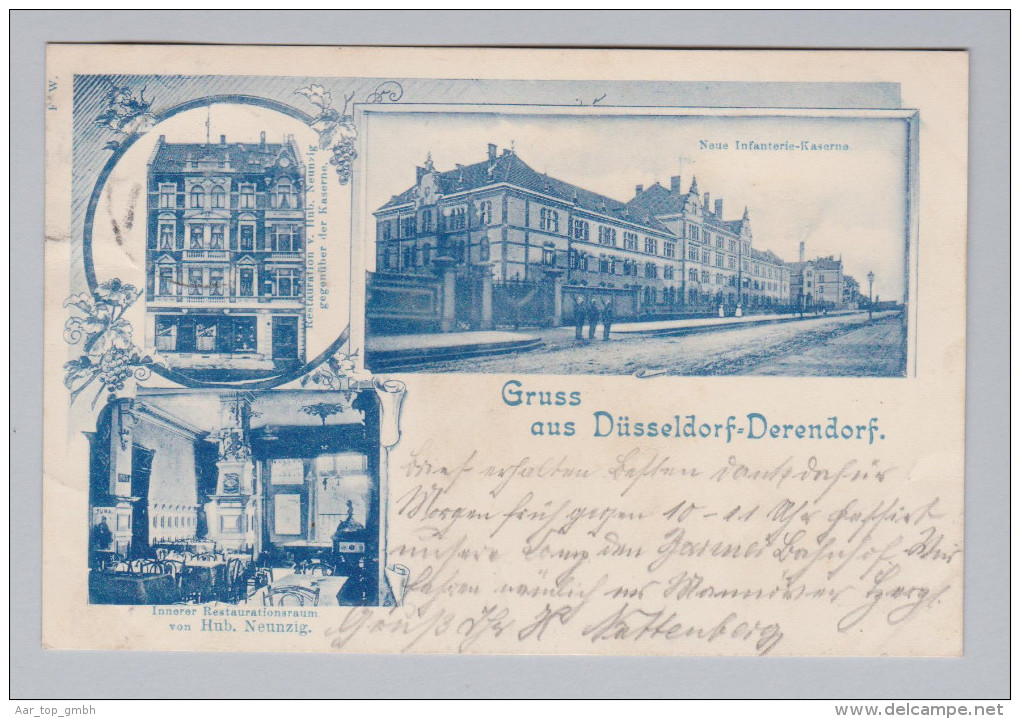 F. W.
Restauration v. Hub. Neunzig
gegenüber der Kaserne.
Neue Infanterie-Kaserne.
Gruss
aus Düsseldorf-Derendorf.
Brief erhalten Besten Dank dafür
Morgen früh gegen 10-11 Uhr passirt
unsere Comp den Barmer Bahnhof. Wir
fahren nämlich ins Manöver Hergl.
Gruß Ihr H Nattenberg
Innerer Restaurationsraum
von Hub. Neunzig.
Aar_top_gmbh
delcampe.net